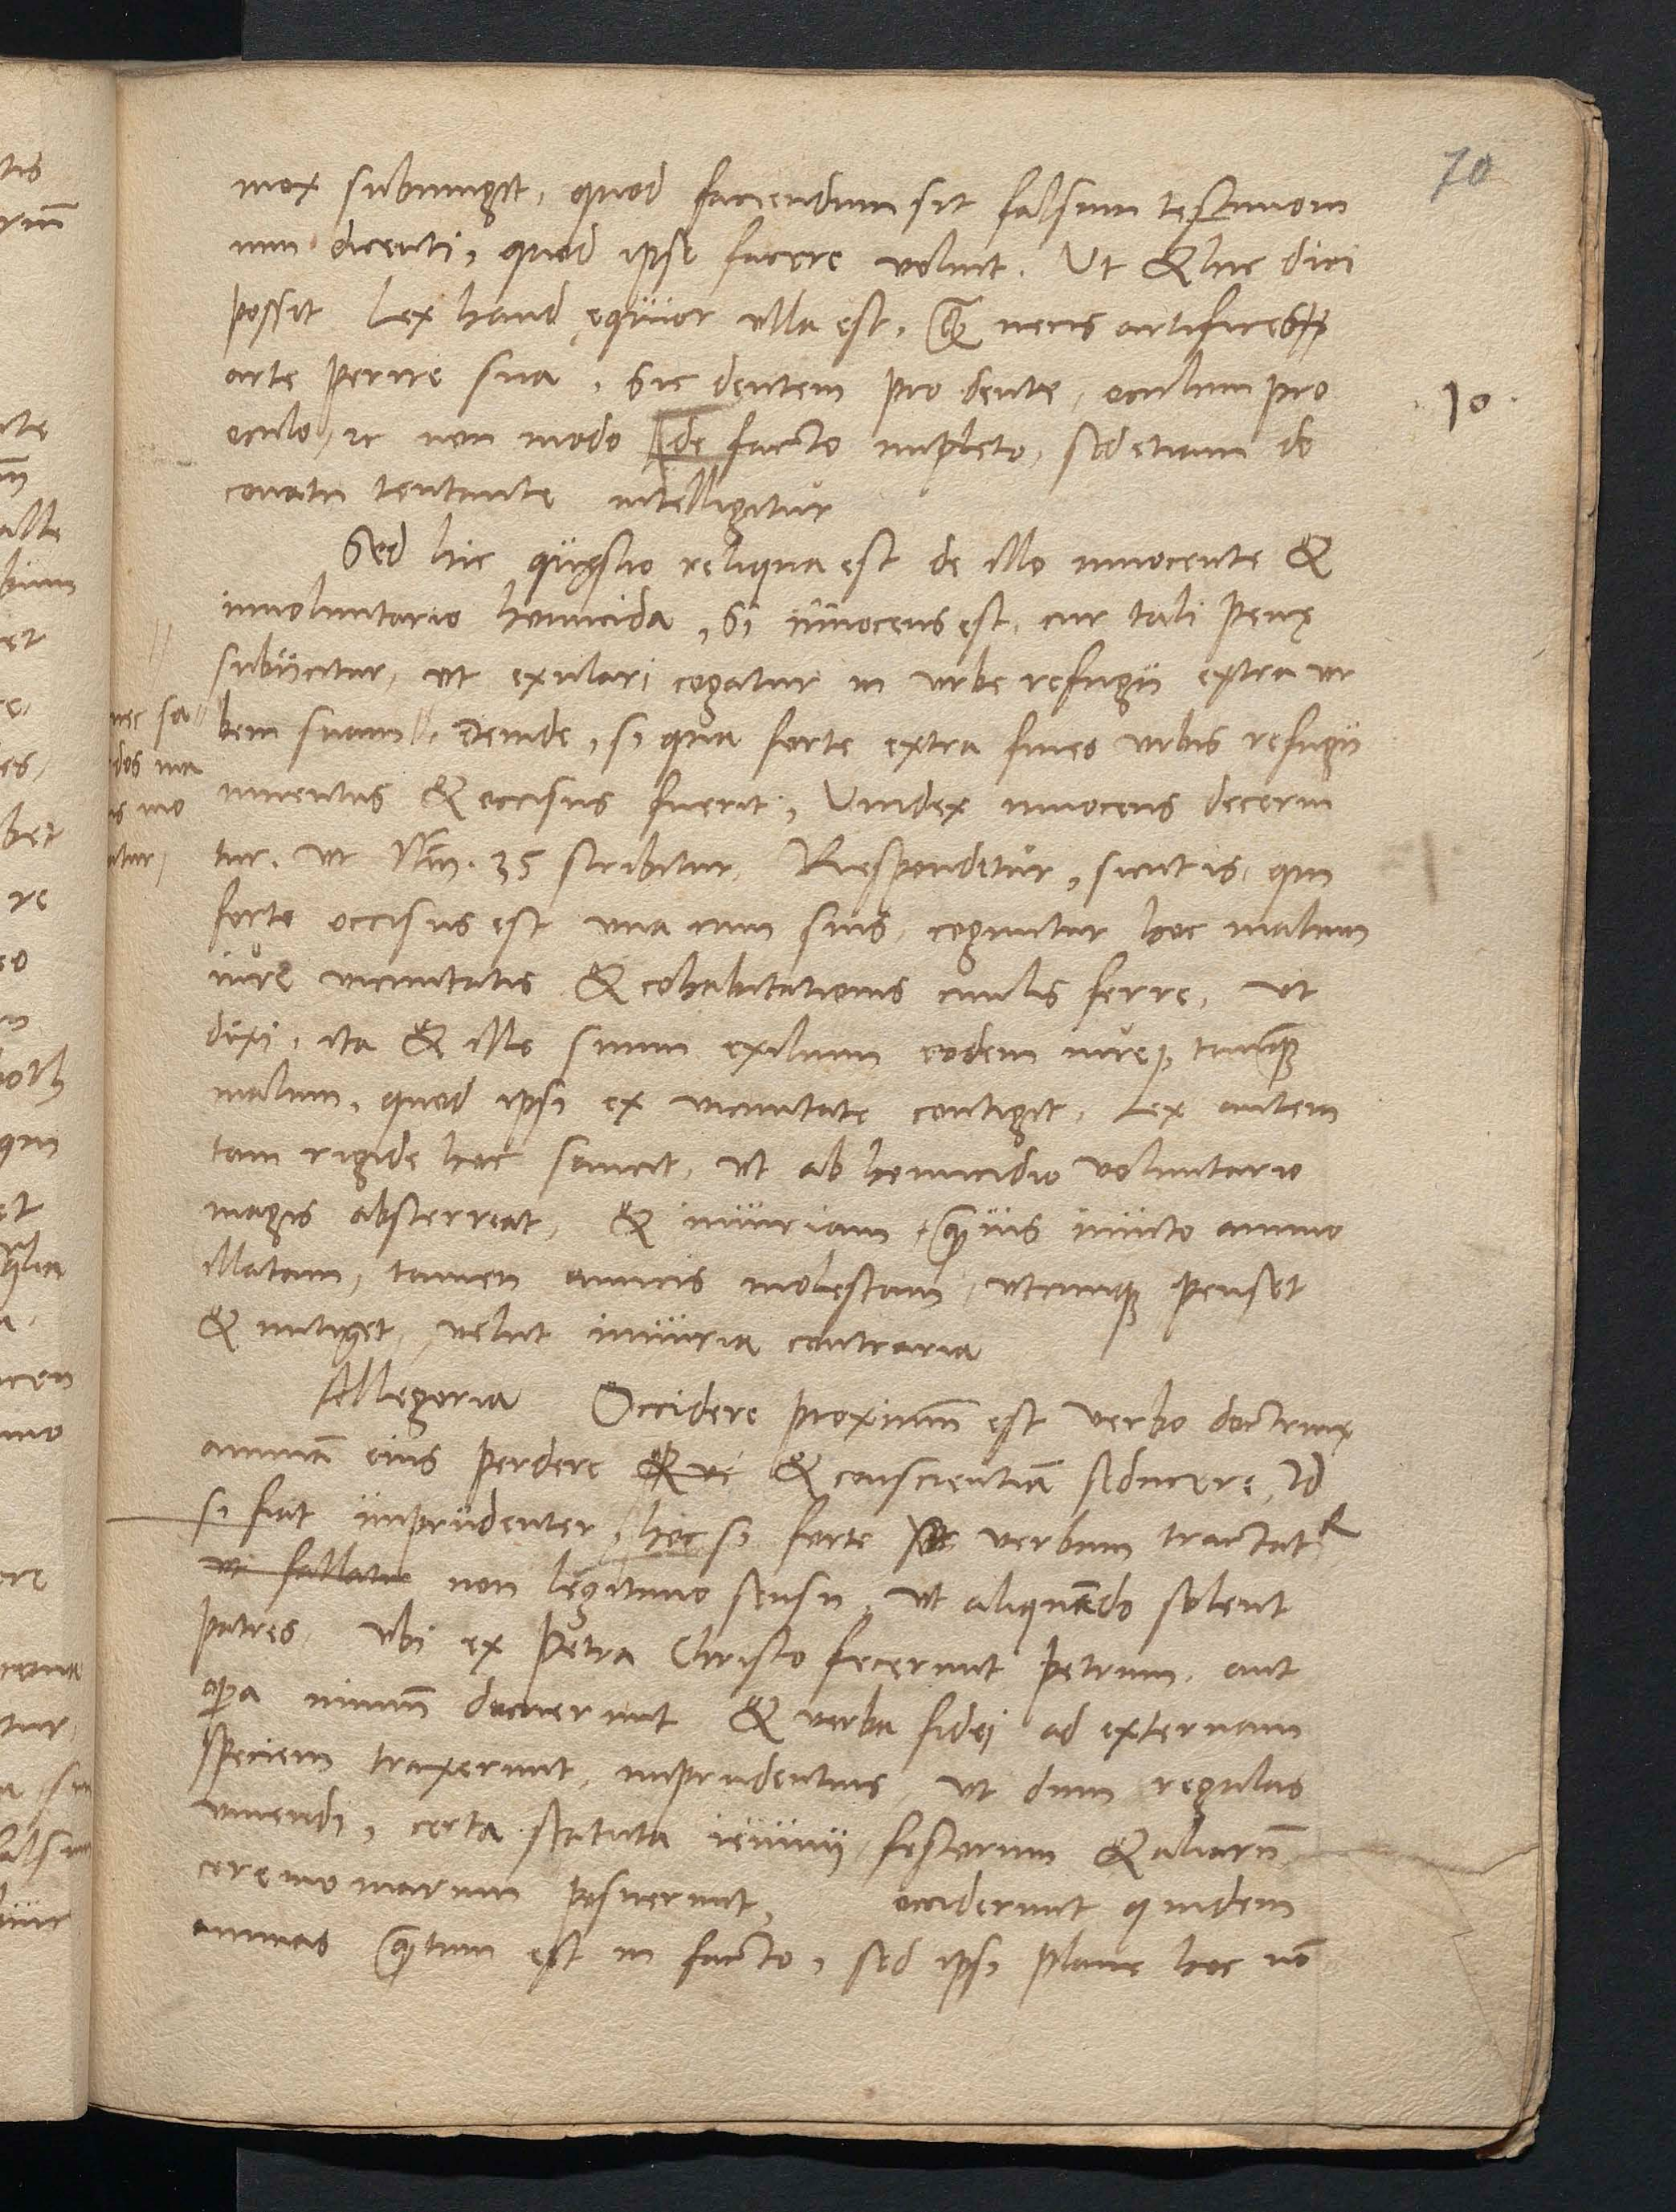 70
mox subiungit, quod faciendum sit falsum testimoni
um dicenti, quod ipse facere voluit. Ut & hic dici
possit Lex haud ęquior ulla est, q̃ necis artifices
arte perire sua, Sic dentem pro dente, oculum pro
10
oculo, ⁊c non modo de facto impleto, sed etiam de
conatu tentante intelligitur
Sed hic quęstio reliqua est de illo innocente &
involuntario homicida, Si innocens est, cur tali penę
subiicitur, ut exulari cogatur in urbe refugii extra ur
bem suam, Deinde, si qua forte extra fines urbis refugii
inventus & occisus fuerit, Vindex innocens decerni
tur. ut Nũ. 35 scribitur, Respondetur, sicut is, qui
forte occisus est una cum suis, coguntur hoc malum
iure vicinitatis & cohabitationis civilis ferre, ut
dixi, ita & ille suum exilium eodem iure, tanq̃
malum, quod ipsi ex vicinitate contigit, Lex autem
tam rigide hoc sancit, ut ab homicidio voluntario
magis absterreat, & iniuriam, q̃vis invito animo
illatam, tamen amicis molestam, utcunq; penset
& mitiget, velut iniuria contraria
Allegoria Occidere proximũ est verbo doctrinę
animã eius perdere & ve & conscientiã seducere, Id
si fiat imprudenter, hoc si forte verbum tractatr
ut fallatur non legitimo sensu, ut aliquãdo solent
patres, ubi ex Petra Christo fecerunt Petrum, aut
opa nimiũ docuerunt & verba fidei ad externam
speciem traxerunt, imprudentius, ut dum regulas
vivendi, certa statuta ieiunii, festorum & aliarũ
ceremoniarum posuerunt, occiderunt quidem
animas q̃tum est in facto, sed ipsi plane hoc nõ